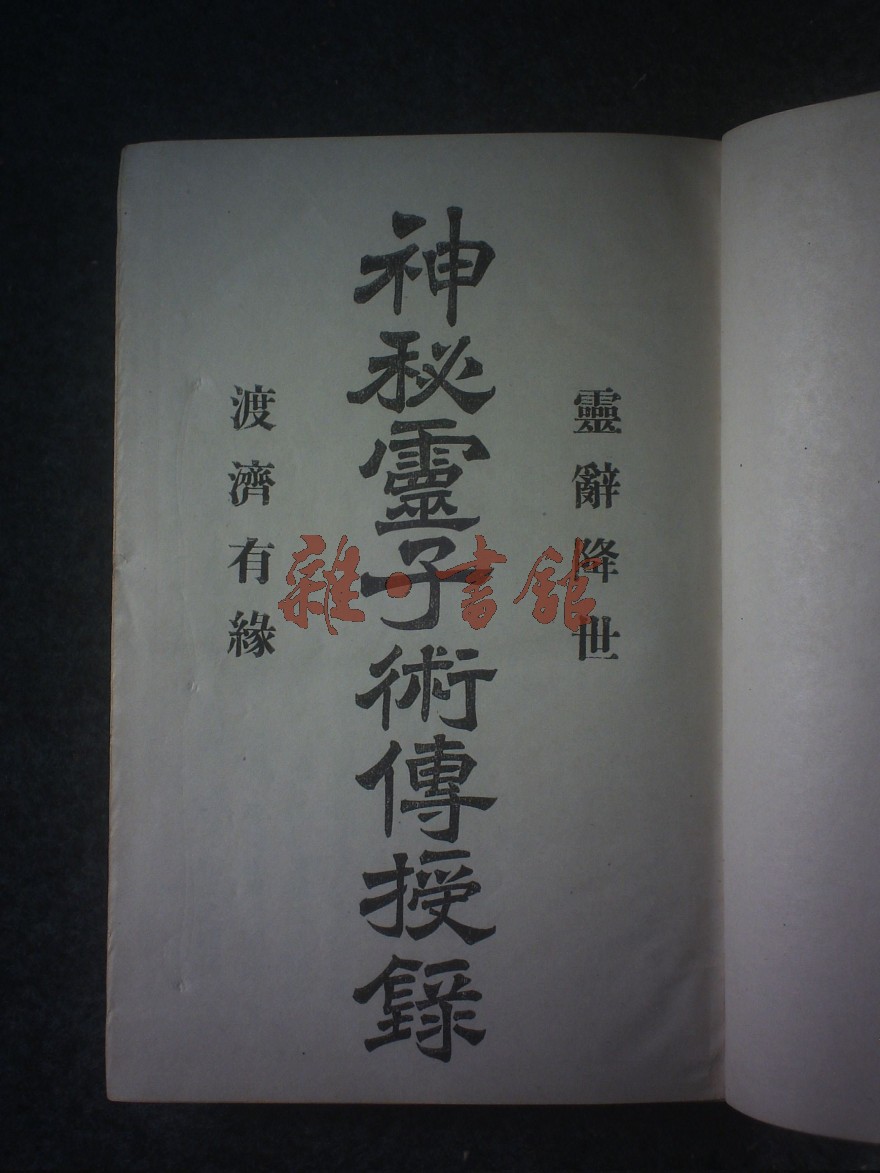 靈辭降世
神秘靈子術傳授錄
渡濟有緣
雜·書館